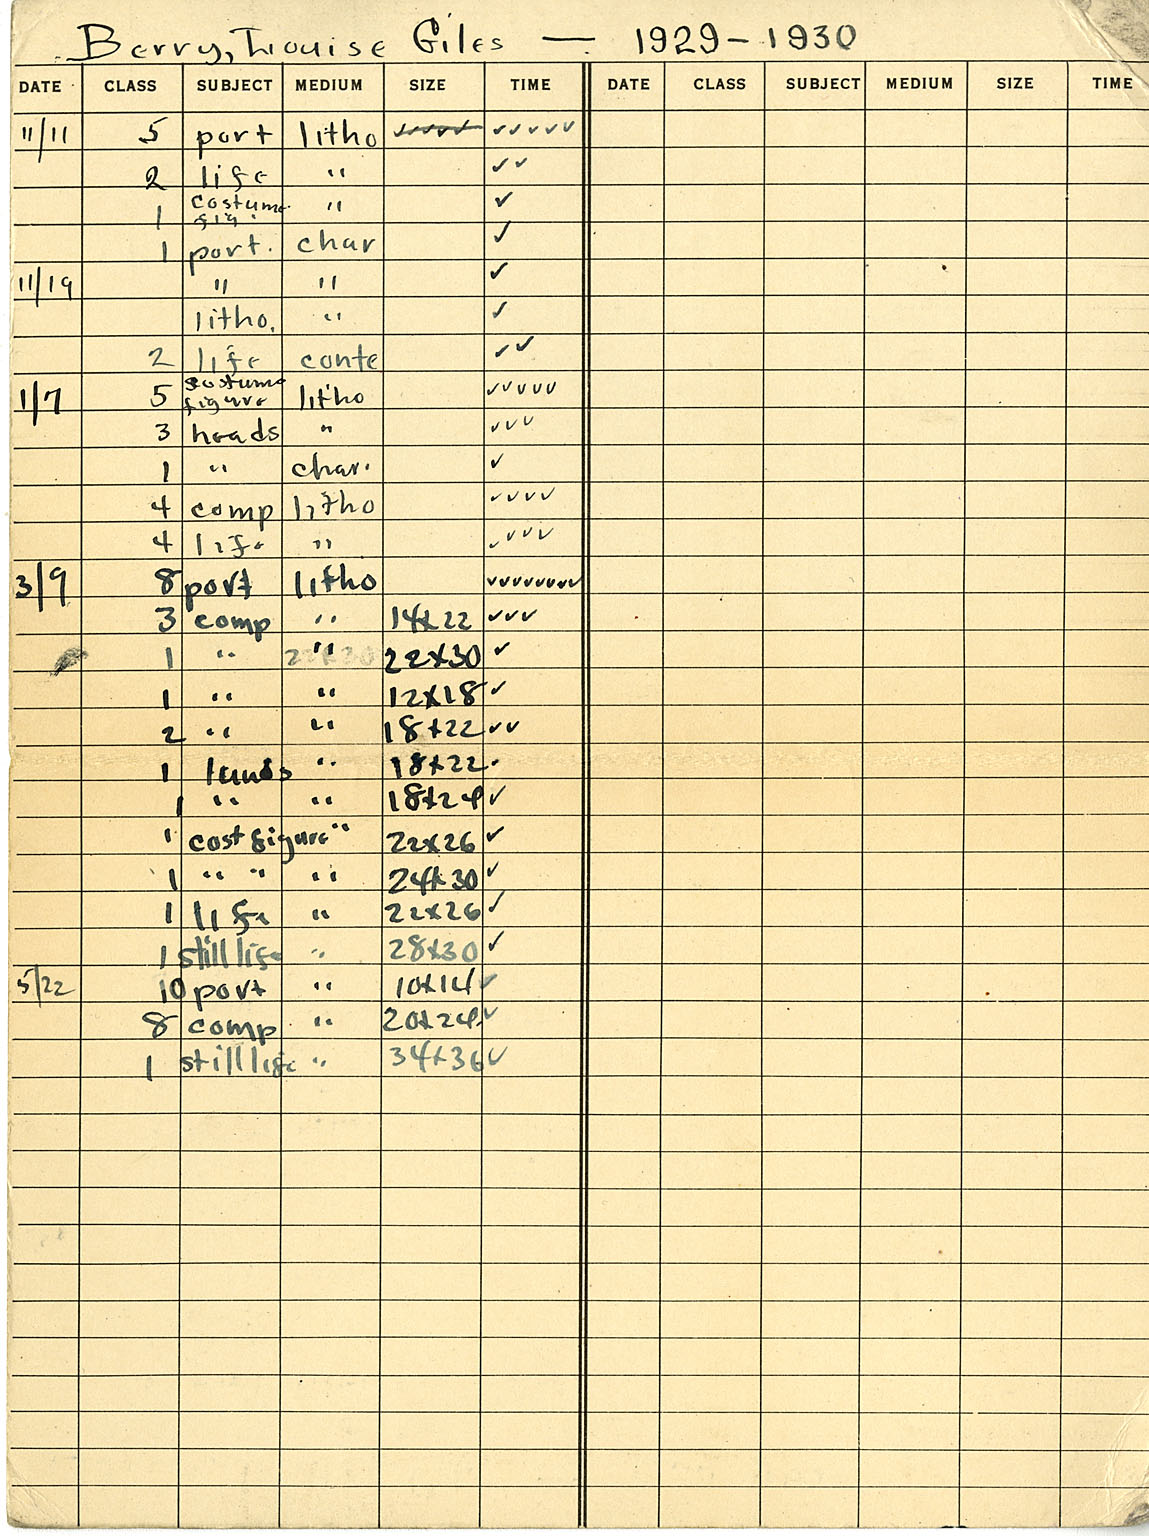 Berry, Louise Giles — 1929-1930
DATE CLASS SUBJECT MEDIUM SIZE TIME DATE CLASS SUBJECT MEDIUM SIZE TIME
11/11 5 port litho ✓✓✓✓✓ ✓✓✓✓✓
2 life " ✓✓
1 costume fig. " ✓
1 port. char ✓
11/19 " " ✓
litho. " ✓
2 life conte ✓✓
1/7 5 costume figure litho ✓✓✓✓✓
3 heads " ✓✓✓
1 " char. ✓
4 comp litho ✓✓✓✓
4 life " ✓✓✓✓
3/9 8 port litho ✓✓✓✓✓✓✓✓
3 comp " 14x22 ✓✓✓
1 " " 22x30 ✓
1 " " 12x18 ✓
2 " " 18x22 ✓✓
1 lands " 18x22 ·
1 " " 18x24 ✓
1 cost figure " 22x26 ✓
1 " " " 24x30 ✓
1 life " 22x26 ✓
1 still life " 28x30 ✓
5/22 10 port " 10x14 ✓
8 comp " 20x24 ✓
1 still life " 34x36 ✓